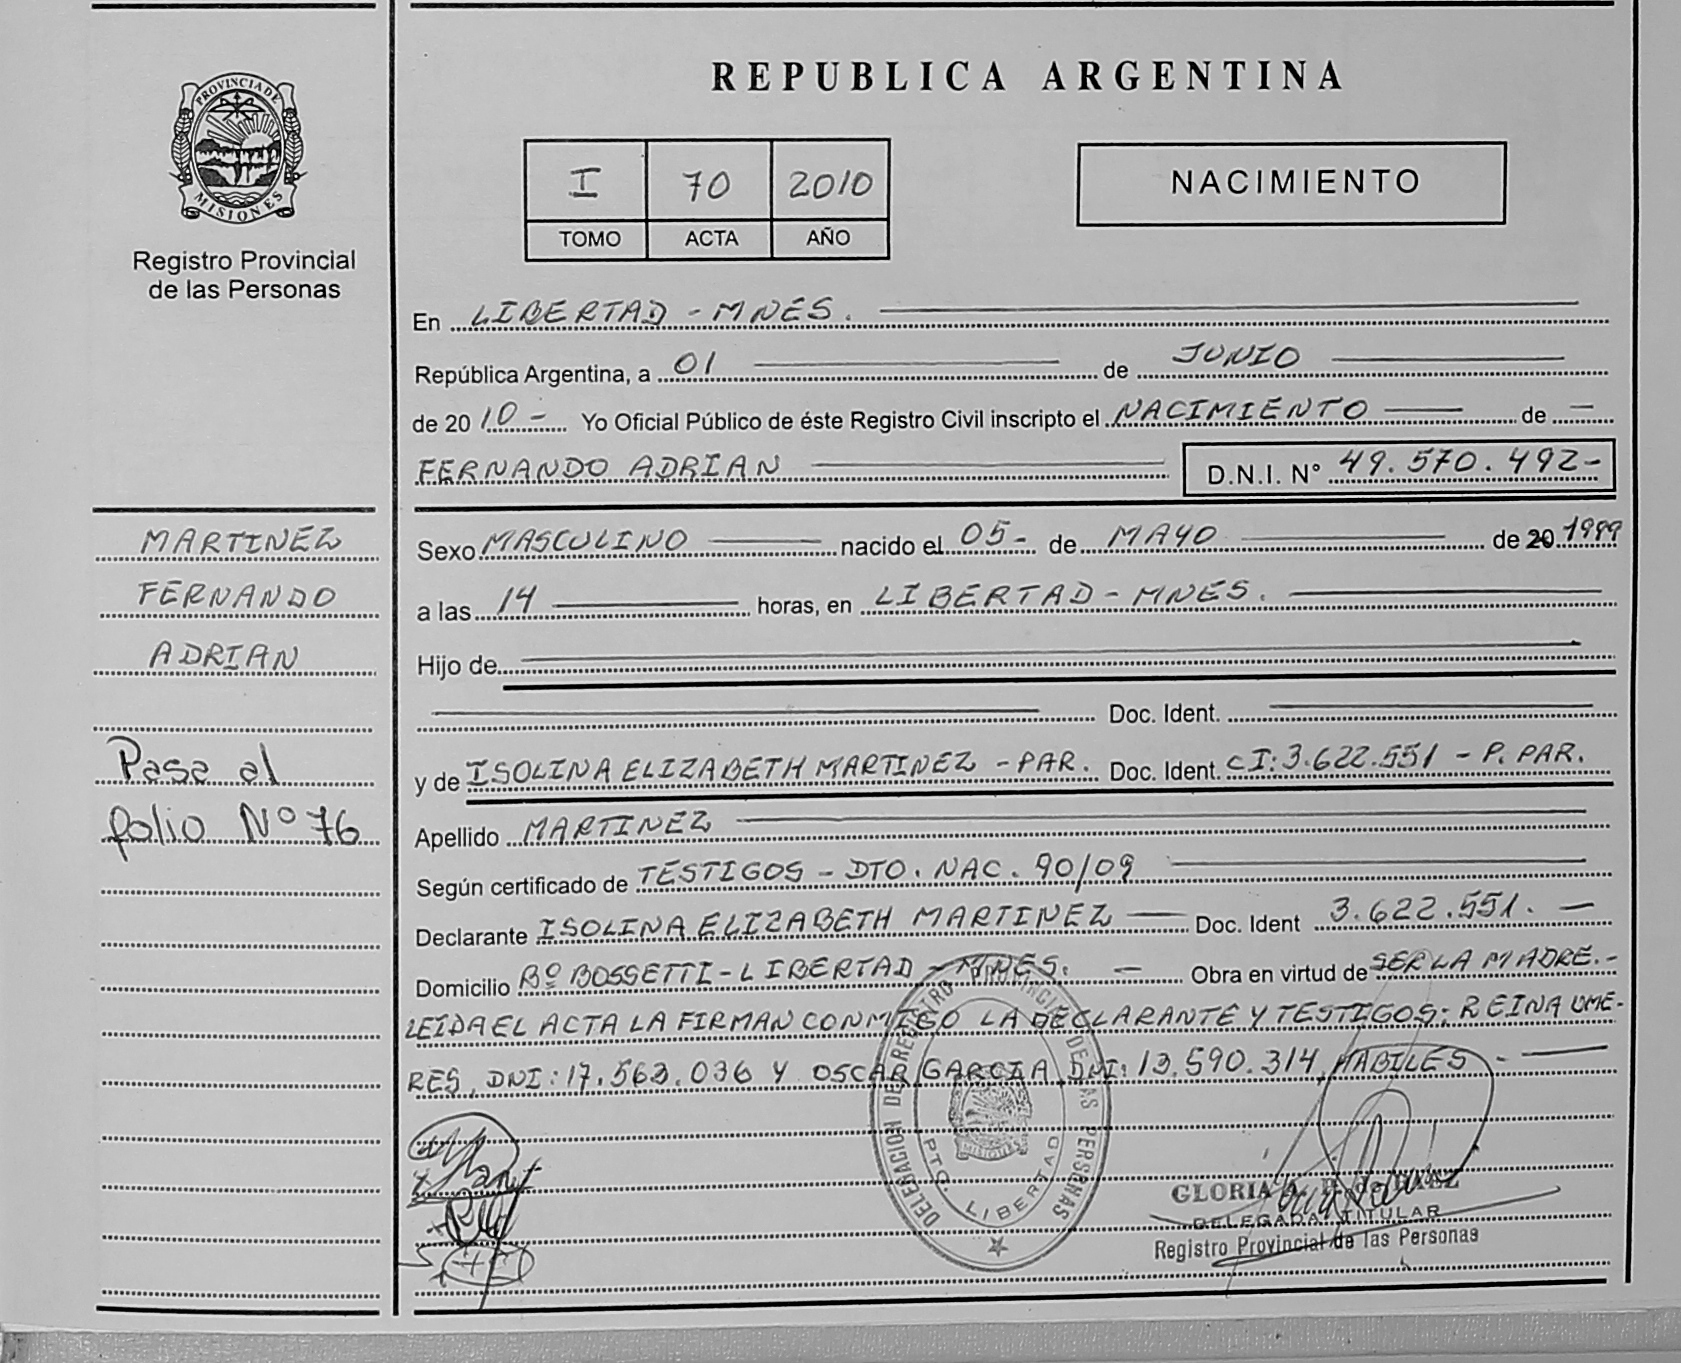 PROVINCIA DE
MISIONES
Registro Provincial
de las Personas
REPUBLICA ARGENTINA
I 70 2010
TOMO ACTA AÑO
NACIMIENTO
En LIBERTAD - MNES.
República Argentina, a 01 de JUNIO
de 20 10 - Yo Oficial Público de éste Registro Civil inscripto el NACIMIENTO de
FERNANDO ADRIAN D.N.I. N° 49.570.492-
MARTINEZ
FERNANDO
ADRIAN
Pasa al
folio Nº 76
Sexo MASCULINO nacido el 05- de MAYO de 20 1999
a las 14 horas, en LIBERTAD - MNES.
Hijo de
Doc. Ident.
y de ISOLINA ELIZABETH MARTINEZ - PAR. Doc. Ident. CI: 3.622.551 - P. PAR.
Apellido MARTINEZ
Según certificado de TESTIGOS - DTO. NAC. 90/09
Declarante ISOLINA ELIZABETH MARTINEZ Doc. Ident 3.622.551.
Domicilio Bº BOSSETTI - LIBERTAD - MNES. Obra en virtud de SER LA MADRE.-
LEÍDA EL ACTA LA FIRMAN CONMIGO LA DECLARANTE Y TESTIGOS: REINA OME-
RES, DNI: 17.563.036 Y OSCAR GARCIA, DNI: 13.590.314, HABILES -
DELEGACION DE REGISTRO PROVINCIAL DE LAS PERSONAS
MISIONES
PTO. LIBERTAD
GLORIA
DELEGADA TITULAR
Registro Provincial de las Personas